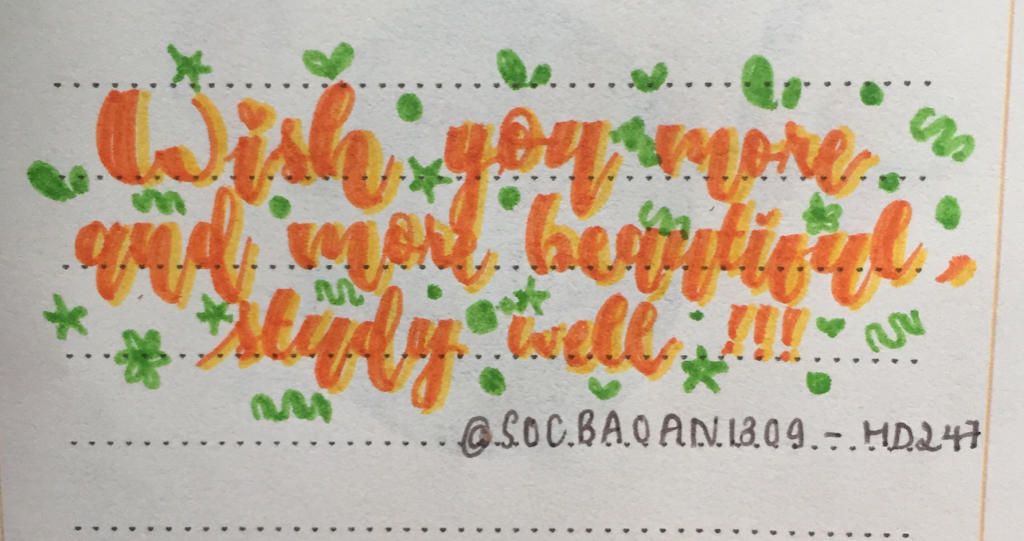 Wish you more
and more beautiful,
study well !!!
@S.O.C.B.A.O.A.N.13.09. - HD.247